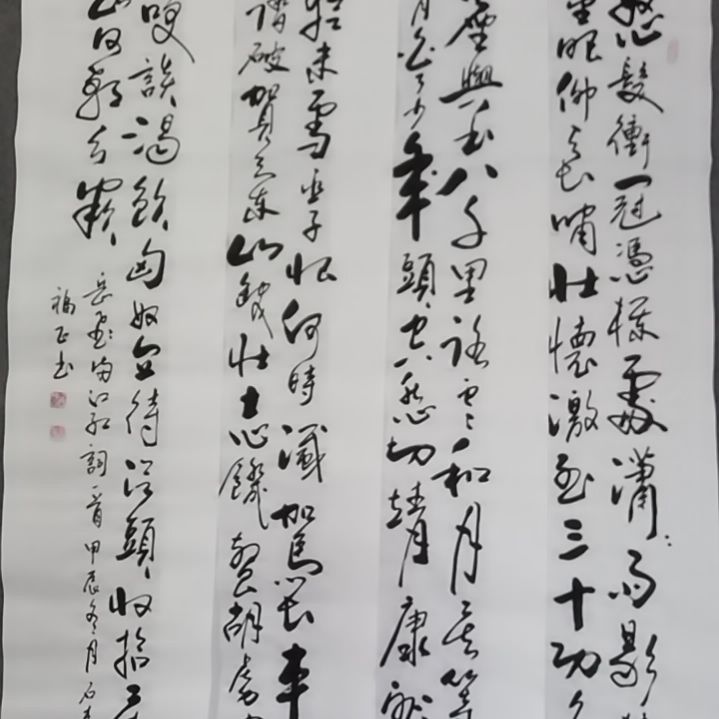 怒髮衝冠憑欄處瀟〻雨歇
望眼仰天長嘯壯懷激烈三十功名
塵與土八千里路雲和月莫等
白了少年頭空悲切靖康恥
猶未雪臣子恨何時滅駕長車
踏破賀蘭山缺壯志飢餐胡虜
笑談渴飲匈奴血待從頭收拾
山河朝天闕
岳飛滿江紅詞一首甲辰冬月石
福正书